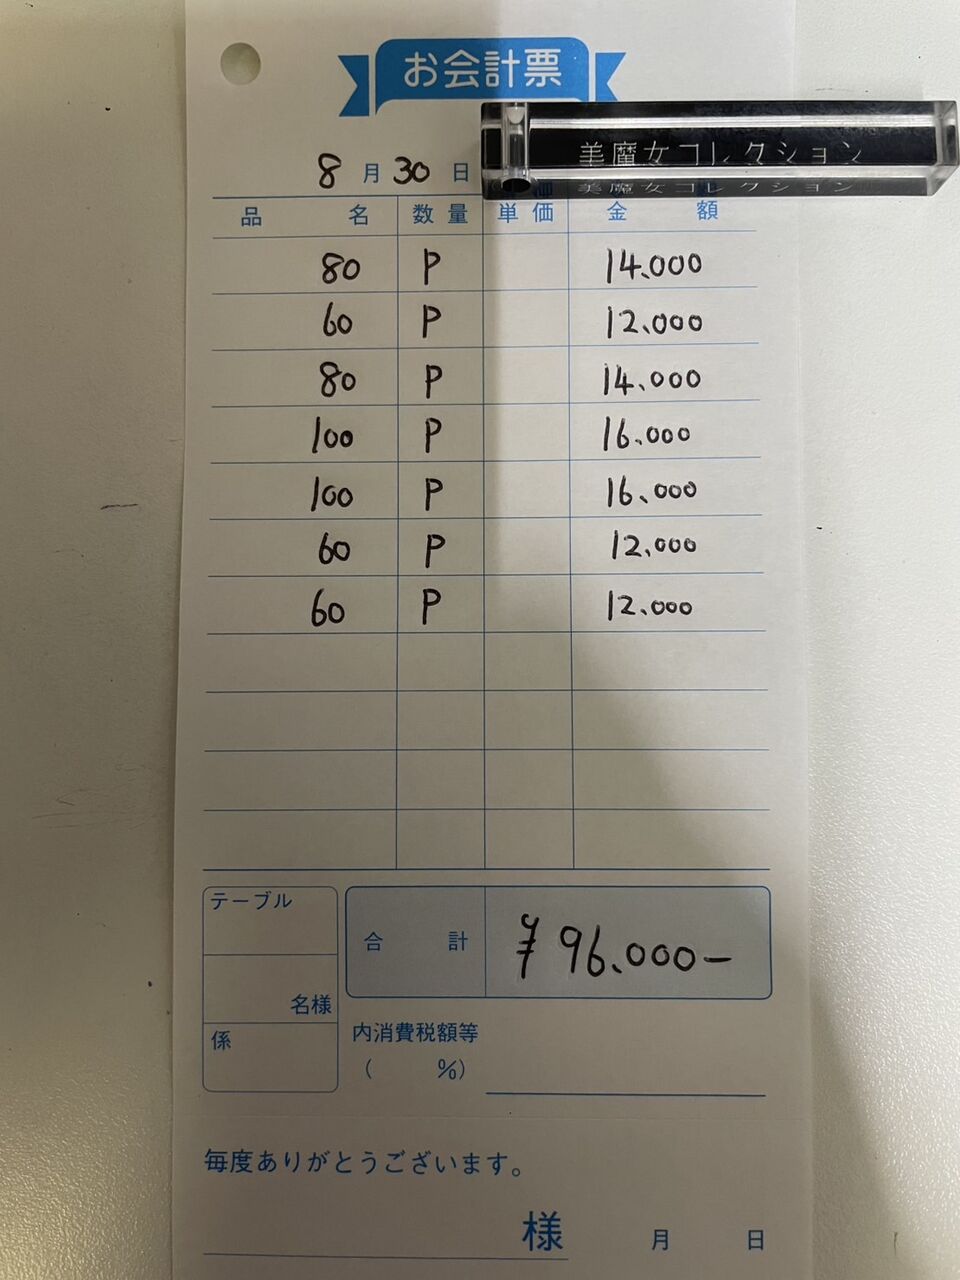 お会計票
美魔女コレクション
美魔女コレクション
8月30日
品名 数量 単価 金額
80 P 14.000
60 P 12.000
80 P 14.000
100 P 16.000
100 P 16.000
60 P 12.000
60 P 12.000
テーブル
合計 ¥96.000-
名様
係
内消費税額等
( %)
毎度ありがとうございます。
様 月 日